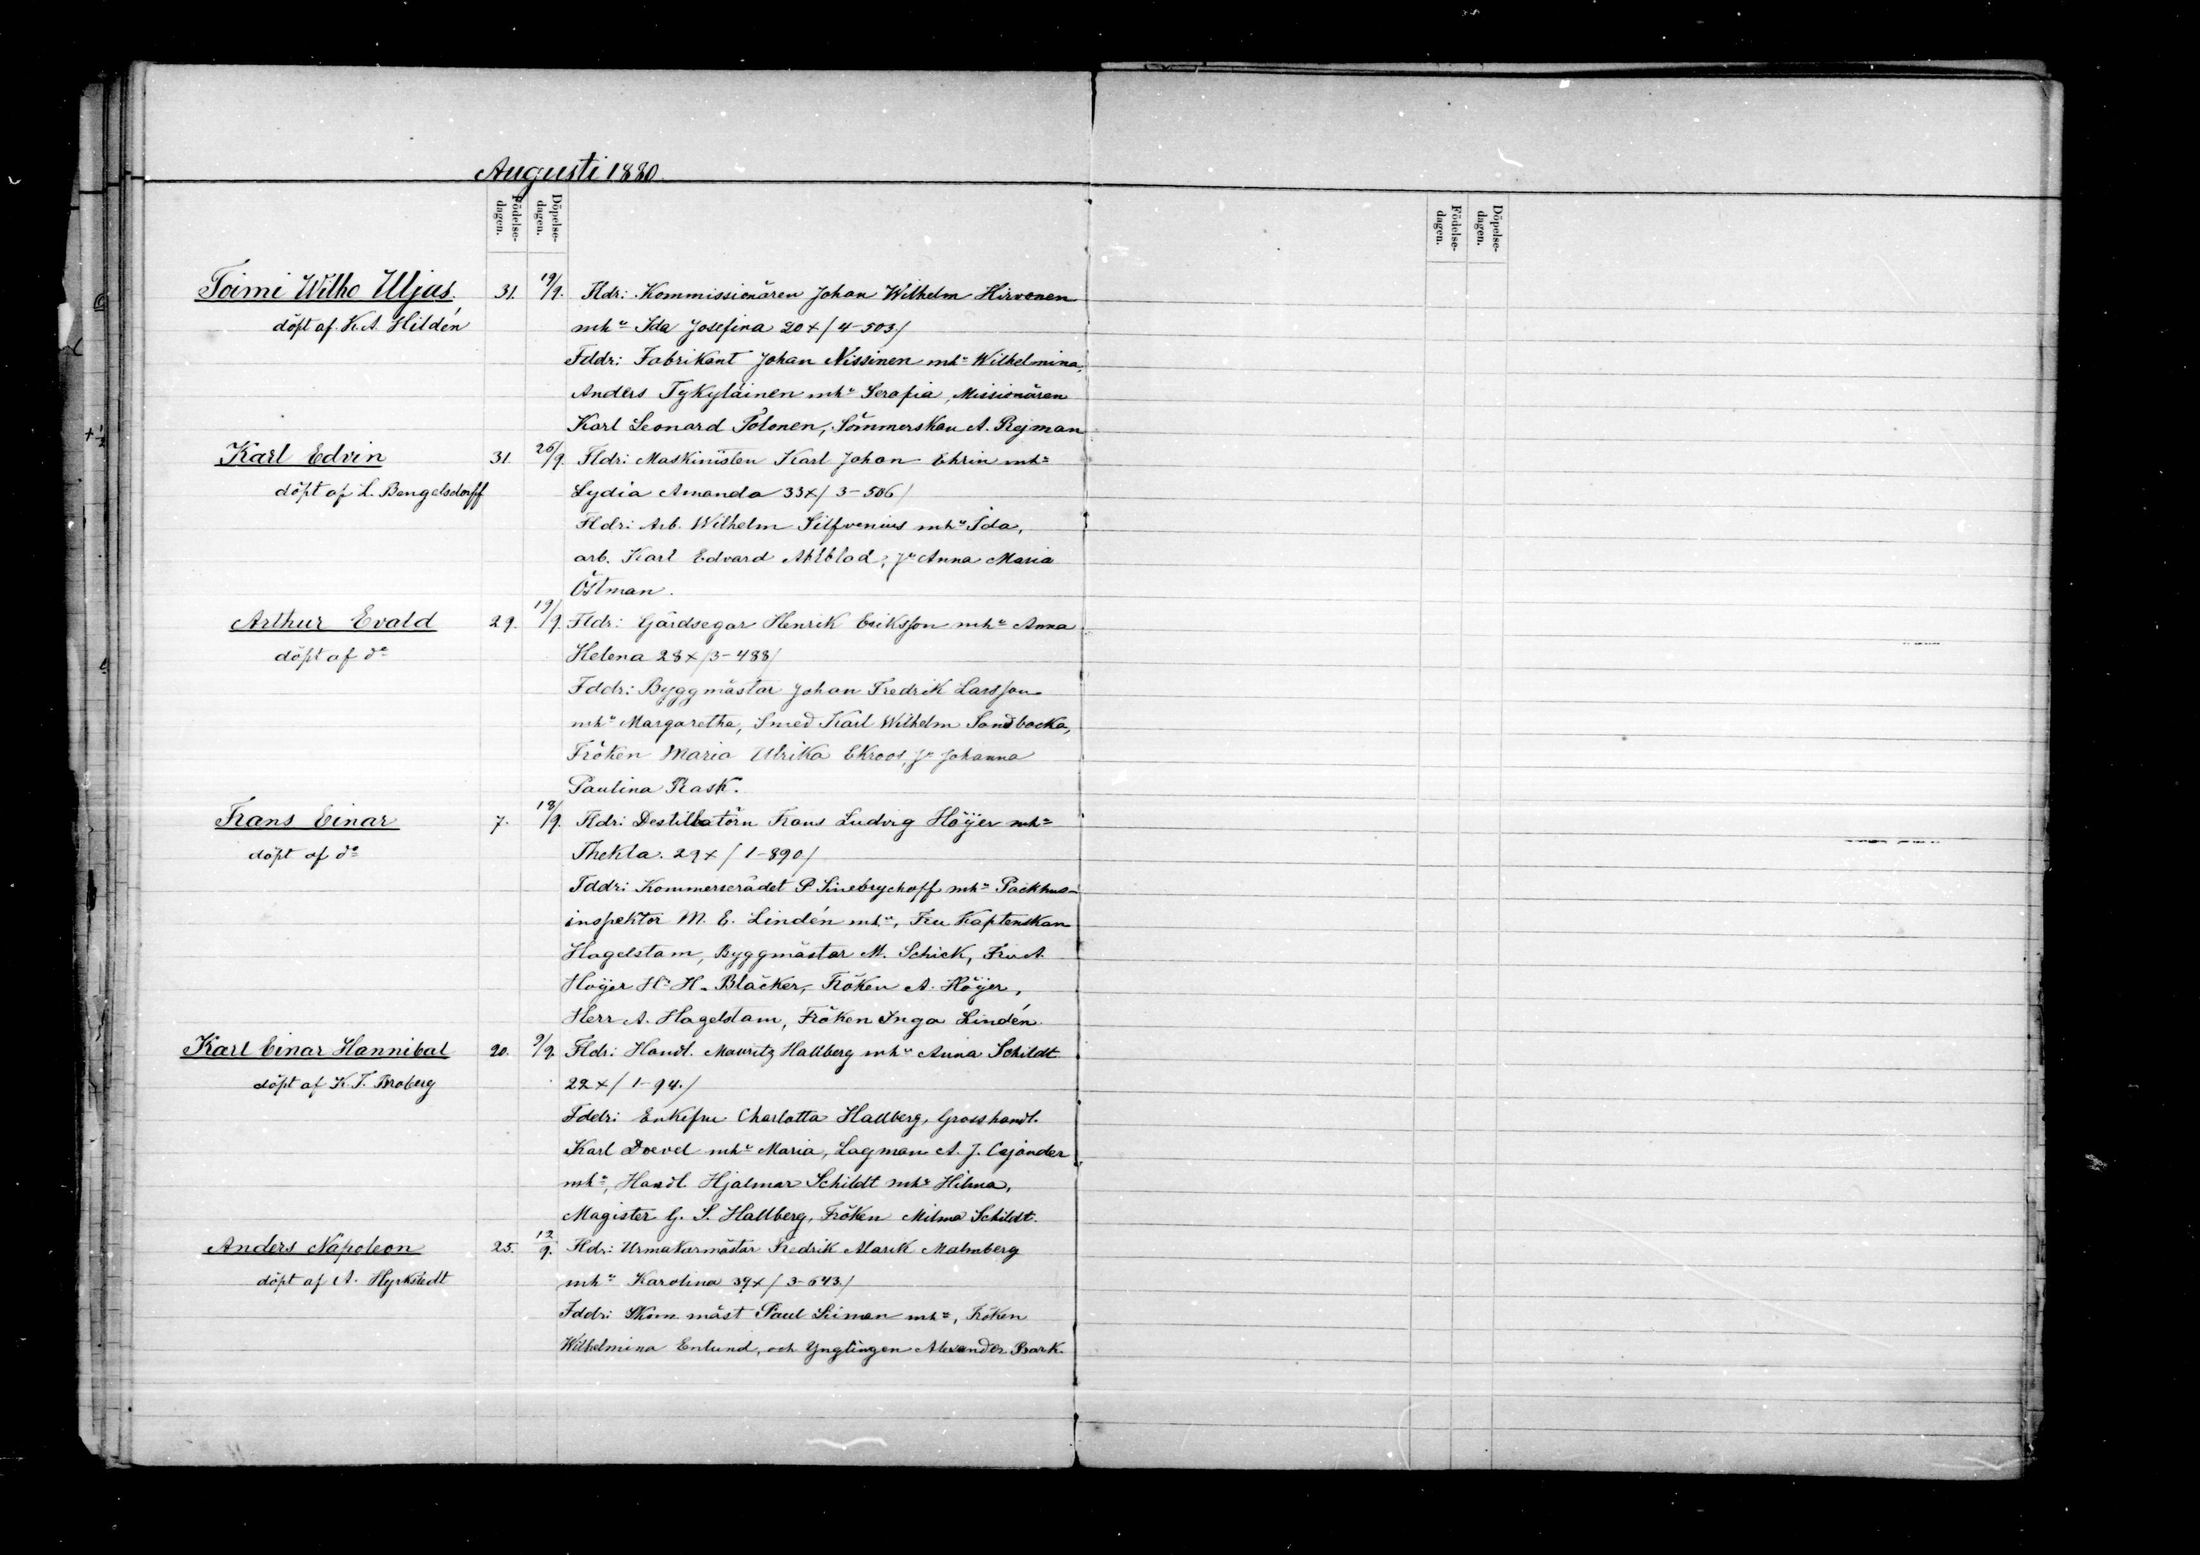 Augusti 1880.
Födelse-
dagen.
Döpelse-
dagen.
Födelse-
dagen.
Döpelse-
dagen.
Toimi Wilho Uljas. 31. 19/9. Fldr: Kommissionären Johan Wilhelm Hirvonen
döpt af K. A. Hildén mhu Ida Josefina 20 x / 4-503 /
Fddr: Fabrikant Johan Nissinen mhu Wilhelmina,
Anders Tykyläinen mhu Serafia, Missionären
Karl Leonard Tolonen, Sömmerskan A. Rejman
Karl Edvin 31. 26/9. Fldr: Maskinisten Karl Johan Ehrin mhu
döpt af L. Bengelsdorff Lydia Amanda 33 x / 3-506 /
Fldr: Arb. Wilhelm Silfvenius mhu Ida,
arb. Karl Edvard Ahlblad, Ju Anna Maria
Östman.
Arthur Evald 29. 19/9. Fldr: Gårdsegar Henrik Eriksson mhu Anna
döpt af do Helena 28 x / 3-488 /
Fddr: Byggmästar Johan Fredrik Larsson
mhu Margaretha, Smed Karl Wilhelm Sandbacka,
Fröken Maria Ulrika Ekroos, Ju Johanna
Paulina Rask.
Frans Einar 7. 18/9. Fldr: Destillatörn Frans Ludvig Höijer mhu
döpt af do Thekla. 29 x / 1-890 /
Fddr: Kommerserådet P Sinebrychoff mhu Packhus-
inspektor M. E. Lindén mhu, Fru Kaptenskan
Hagelstam, Byggmästar M. Schick, Fru A.
Höijer Hr H. Bläcker, Fröken A. Höijer,
Herr A. Hagelstam, Fröken Inga Lindén.
Karl Einar Hannibal 20. 9/9. Fldr: Handl. Mauritz Hallberg mhu Anna Schildt
döpt af K. T. Broberg 22 x / 1-94. /
Fddr: Enkefru Charlotta Hallberg, Grosshandl.
Karl mhu Maria, Lagman A. J. Cajander
mhu, Handl. Hjalmar Schildt mhu Hilma,
Magister G. S. Hallberg, Fröken Milma Schildt.
Anders Napoleon 25. 12/9. Fldr: Urmakarmästar Fredrik Alarik Malmberg
döpt af A. Hyrkstedt mhu Karolina 39 x / 3-643. /
Fddr: Skom. mäst Paul Siiman mhu, Fröken
Wilhelmina Enlund, och Ynglingen Alexander Bark.